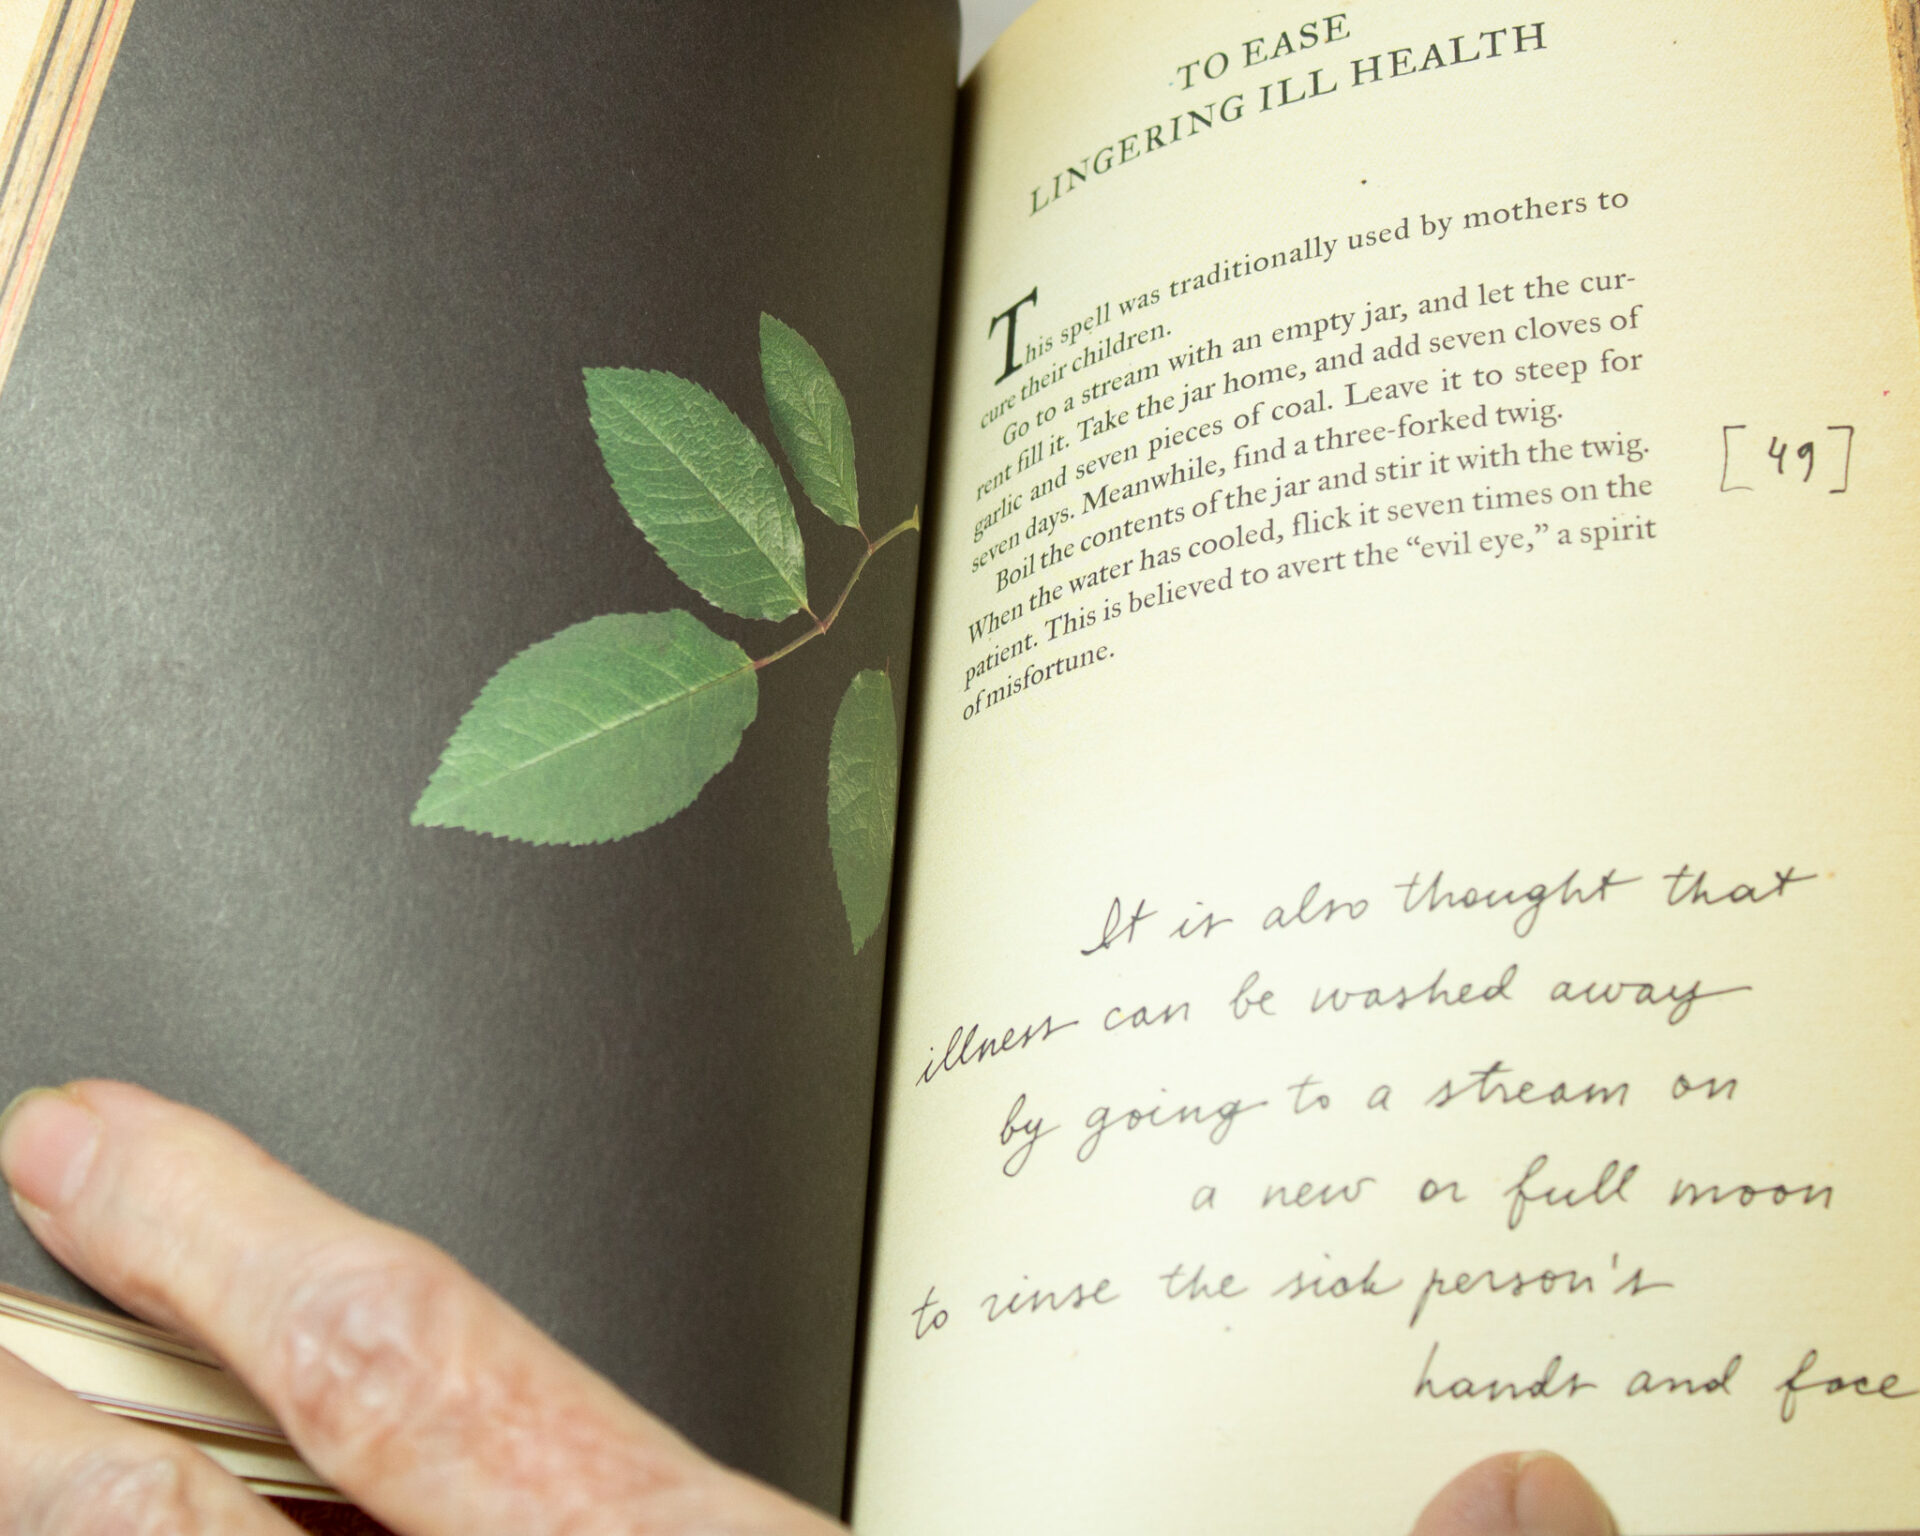 TO EASE
LINGERING ILL HEALTH
This spell was traditionally used by mothers to
cure their children.
Go to a stream with an empty jar, and let the cur-
rent fill it. Take the jar home, and add seven cloves of
garlic and seven pieces of coal. Leave it to steep for
seven days. Meanwhile, find a three-forked twig.
Boil the contents of the jar and stir it with the twig.
When the water has cooled, flick it seven times on the
patient. This is believed to avert the “evil eye,” a spirit
of misfortune.
[49]
It is also thought that
illness can be washed away
by going to a stream on
a new or full moon
to rinse the sick person's
hands and face